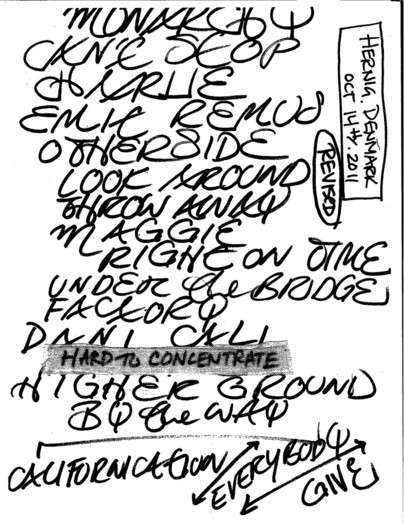 MONARCHY
CAN'T STOP
CHARLIE
EMIT REMUS
OTHERSIDE
LOOK AROUND
THROW AWAY
MAGGIE
RIGHT ON TIME
UNDER the BRIDGE
FACTORY
DANI CALI
HARD TO CONCENTRATE
HIGHER GROUND
BY the WAY
CALIFORNICATION EVERYBODY GIVE
HERNIG, DENMARK
OCT 14th, 2011
REVISED